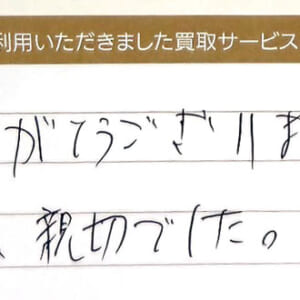 利用いただきました買取サービス
がとうございま
、親切でした。